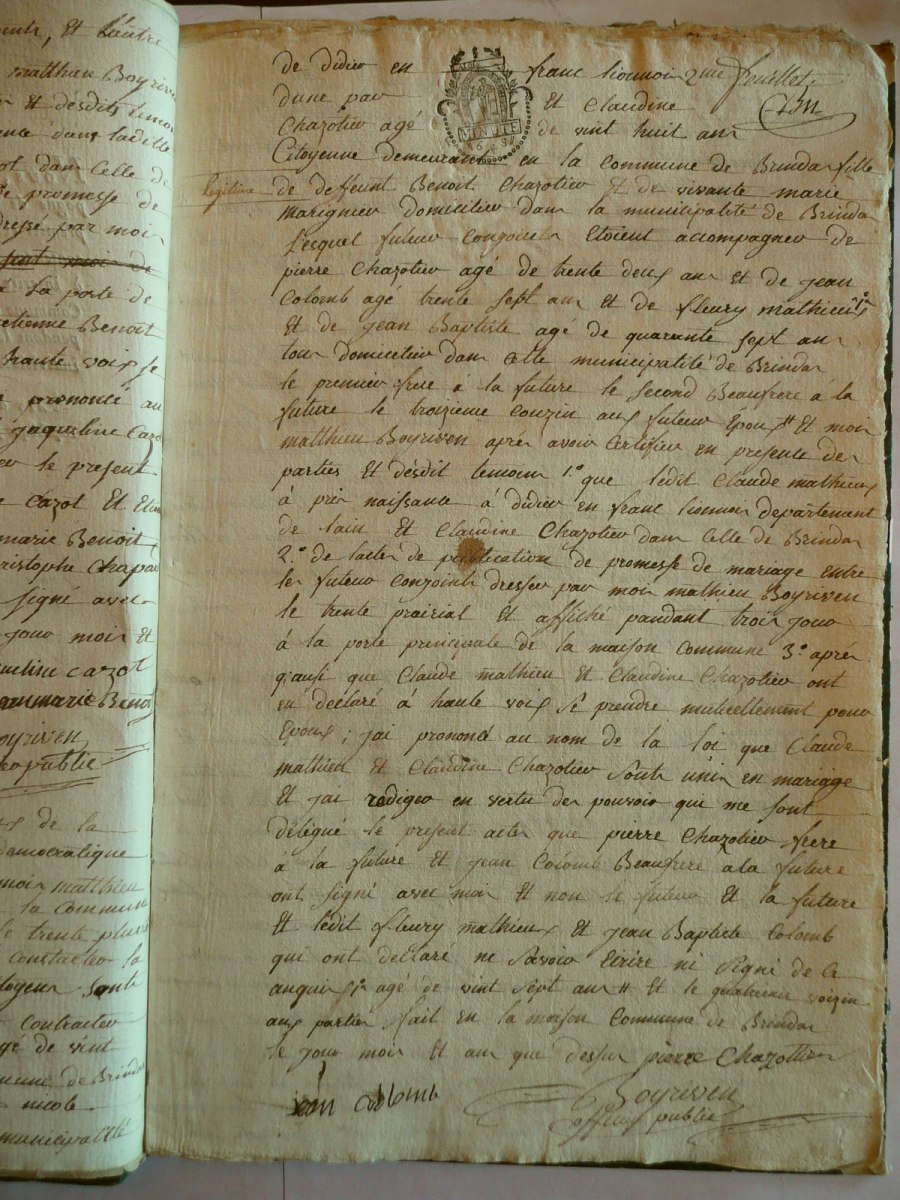 oints, et l'autre
matthieu Boyriven
et désdits temoi
dans ladille
ot dans Celle de
promesse de
dressé par moi
sont moi de
la porte de
etienne Benoit
haute voix se
prononcé au
jaqueline Cazot
le present
Cazot et
marie Benoit
christophe Chapa
signé avec
jour moir et
queline cazot
marie Benoit
Boyriven
publie
de la
democratique
moir matthieu
la commune
le trente
Constacter la
toyens sont
Contracter
age de vint
mune de Brinda
nicole
municipalité
de didier en franc lionnoir 2me feuillet
dune par et Claudine
Chazotier agé de vint huit anr
MINUTE
Citoyenne demeurante en la Commune de Brindar fille
legitime
de deffeunt Benoit Chazotier et de vivante marie
marignier domicilier dans la municipalité de Brindar
Lesquel futeur Conjoint Etoient accompagner de
pierre Chazotier agé de trente deux anr et de jean
Colomb agé trente sept anr et de fleury mathieux
et de jean Baptiste agé de quarante sept anr
tour domicilier dans Cette municipalité de Brindar
le premier frere à la future le second Beaufrere à la
future le troizieme Couzin aux futeur Epoux # et moir
matthieu Boyriven aprér avoir Certifier en presente der
partiér et désdit temoin 1.º que ledit Claude mathieux
à prir naissante à didier en franc lionnoir departement
de lain et Claudine Chazotier dans Celle de Brindar
2.º de lacter de publication de promesse de mariage entre
ler futeur conjoint dresser par moir mathieu Boyriven
le trente prairial et affiché pandant troir jour
à la porte principale de la maison Commune 3.º aprér
q'ausi que Claude mathieu et Claudine Chazotier ont
eu déclaré à haute voix se prendre mutuellement pour
Epoux; jai prononcé au nom de la loi que Claude
mathieu et Claudine Chazotier sont unir en mariage
et jai rediger en vertu der pouvoir qui me sont
délégué le present acter que pierre Chazotier frere
à la future et jean Colomb Beaufrere à la future
ont signé avec moir et non le futeur et la future
et ledit fleury mathieux et jean Baptiste Colomb
qui ont declaré ne savoir Ecrire ni signé de Ce
anquir agé de vint sept anr # et le quatrieme voizin
aux partier fait en la maison Commune de Brindar
le jour moir et anr que dessur pierre Chazottier
jean collomb
Boyriven
officier publie